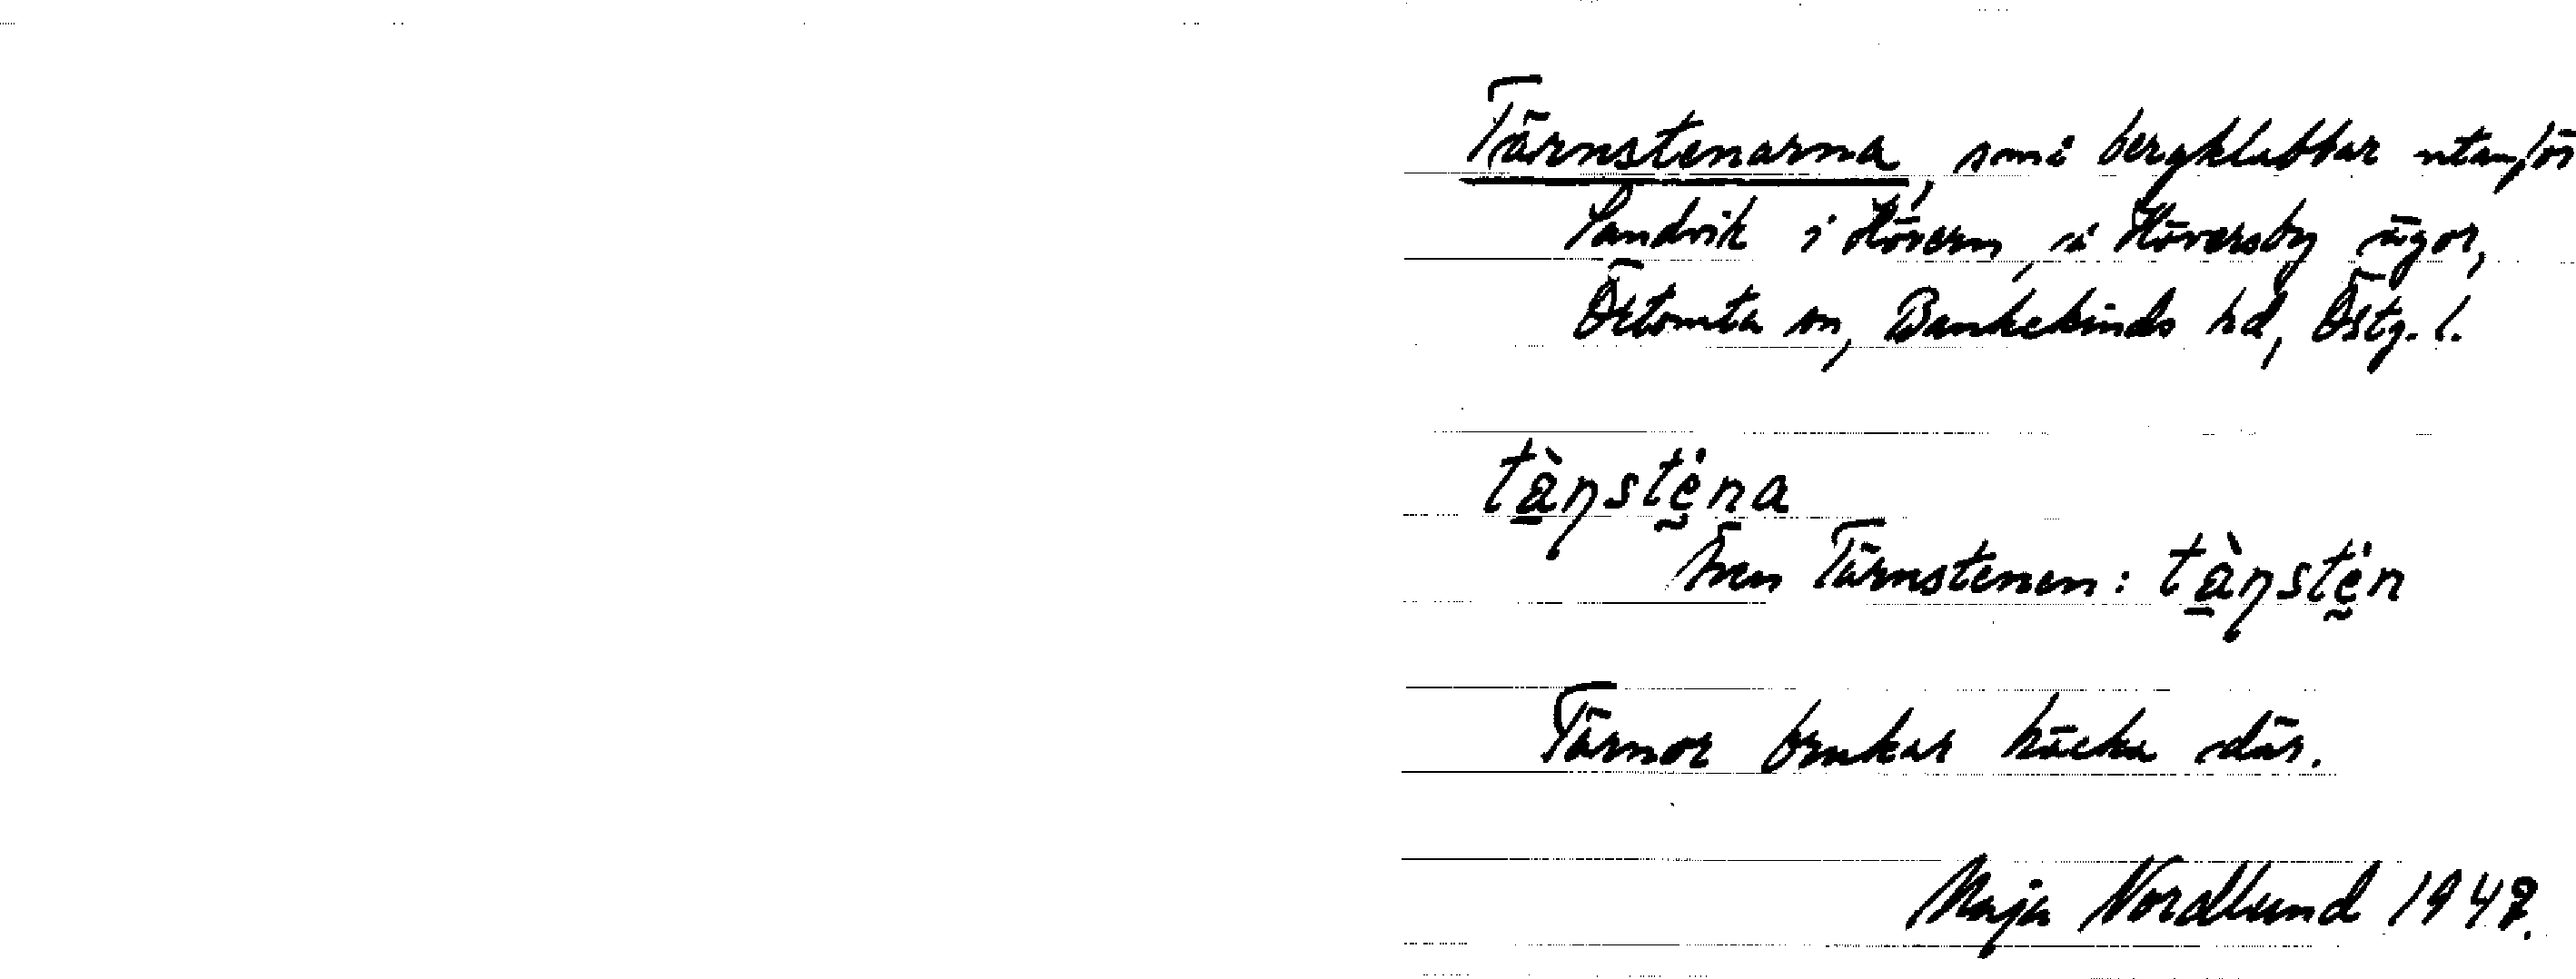 Tärnstenarna, små bergklabbar utanför
Sandvik i Hövern, å Höversby ägor,
Örtomta sn, Bankekinds hd, Östg. l.
tàṇstḛ̇na
Även Tärnstenen: tàṇstḛ̇n
Tärnor bruka häcka där.
Maja Nordlund 1947.